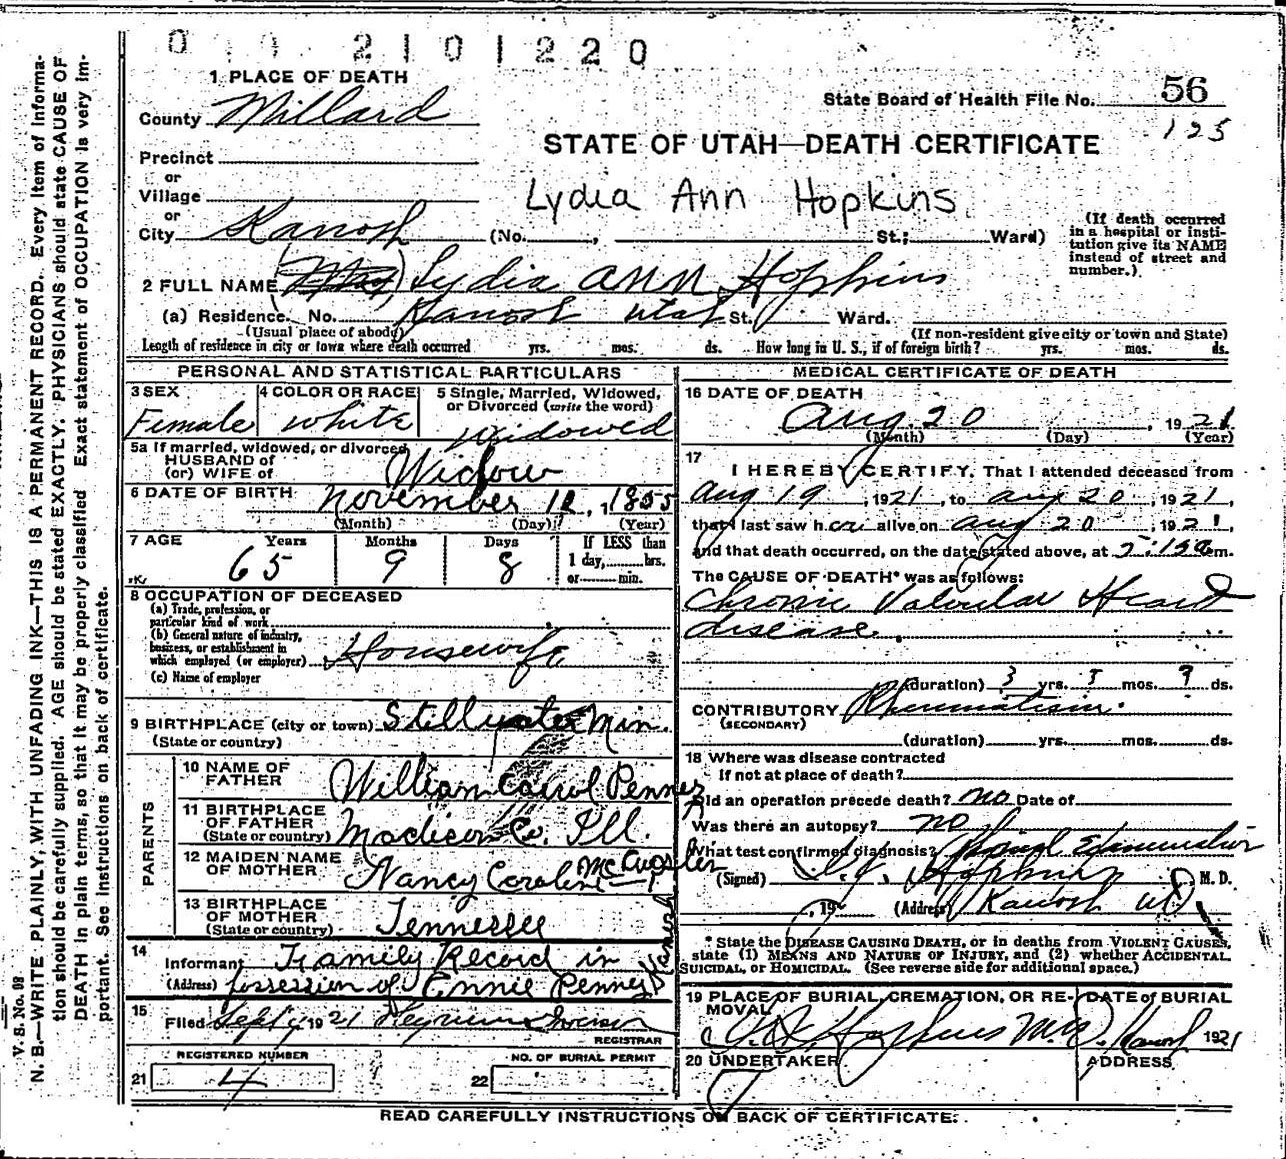 0 0 2 1 0 1 2 2 0
1 PLACE OF DEATH
County Millard
State Board of Health File No. 56
125
STATE OF UTAH—DEATH CERTIFICATE
Precinct
or
Village
or
Lydia Ann Hopkins
City Kanosh (No. , St.; Ward)
(If death occurred in a hospital or insti-
tution give its NAME
instead of street and
number.)
2 FULL NAME Lydia Ann Hopkins
(a) Residence. No. Kanosh Utah St. Ward.
(Usual place of abode) (If non-resident give city or town and State)
Length of residence in city or town where death occurred yrs. mos. ds. How long in U. S., if of foreign birth? yrs. mos. ds.
PERSONAL AND STATISTICAL PARTICULARS
3 SEX Female
4 COLOR OR RACE white
5 Single, Married, Widowed,
or Divorced (write the word)
Widowed
5a If married, widowed, or divorced
HUSBAND of
(or) WIFE of Widow
6 DATE OF BIRTH November 12, 1855
(Month) (Day) (Year)
7 AGE Years 65 Months 9 Days 8
If LESS than
1 day, hrs.
or min.
8 OCCUPATION OF DECEASED
(a) Trade, profession, or
particular kind of work
(b) General nature of industry,
business, or establishment in
which employed (or employer) Housewife
(c) Name of employer
9 BIRTHPLACE (city or town) Stillwater Min.
(State or country)
PARENTS
10 NAME OF
FATHER William Carrol Penney
11 BIRTHPLACE
OF FATHER
(State or country) Madison Co. Ill.
12 MAIDEN NAME
OF MOTHER Nancy Caroline
13 BIRTHPLACE
OF MOTHER
(State or country) Tennessee
14
Informant Family Record in
(Address) possession of Ennie Penney Kanosh
15
Filed Sept 1921
REGISTRAR
REGISTERED NUMBER
21 4
NO. OF BURIAL PERMIT
22
MEDICAL CERTIFICATE OF DEATH
16 DATE OF DEATH
Aug. 20, 1921
(Month) (Day) (Year)
17
I HEREBY CERTIFY, That I attended deceased from
Aug 19, 1921, to Aug 20, 1921,
that I last saw her alive on Aug 20, 1921,
and that death occurred, on the date stated above, at 5:15 a.m.
The CAUSE OF DEATH* was as follows:
Chronic Valvular Heart
disease.
(duration) 3 yrs. 5 mos. 9 ds.
CONTRIBUTORY Rheumatism.
(SECONDARY)
(duration) yrs. mos. ds.
18 Where was disease contracted
If not at place of death?
Did an operation precede death? no Date of
Was there an autopsy? no
What test confirmed diagnosis? Examination
(Signed) Hopkins M. D.
, 19 (Address) Kanosh
* State the DISEASE CAUSING DEATH, or in deaths from VIOLENT CAUSES,
state (1) MEANS AND NATURE OF INJURY, and (2) whether ACCIDENTAL
SUICIDAL, or HOMICIDAL. (See reverse side for additional space.)
19 PLACE OF BURIAL, CREMATION, OR RE-
MOVAL
DATE of BURIAL
Hopkins M.D. Kanosh 1921
20 UNDERTAKER
ADDRESS
READ CAREFULLY INSTRUCTIONS ON BACK OF CERTIFICATE.
V. S. No. 98
N. B.—WRITE PLAINLY, WITH UNFADING INK—THIS IS A PERMANENT RECORD. Every Item of Informa-
tion should be carefully supplied. AGE should be stated EXACTLY. PHYSICIANS should state CAUSE OF
DEATH in plain terms, so that it may be properly classified. Exact statement of OCCUPATION is very im-
portant. See instructions on back of certificate.